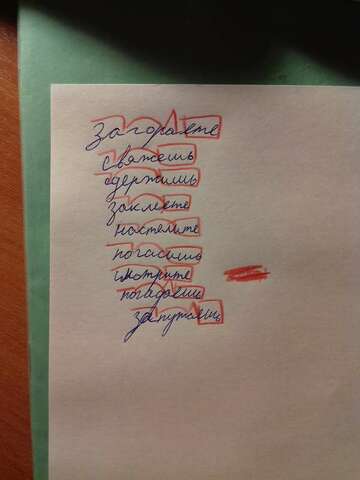 загораете
свяжешь
держишь
заклеете
настелите
погасишь
смотрите
погадаешь
запутаешь